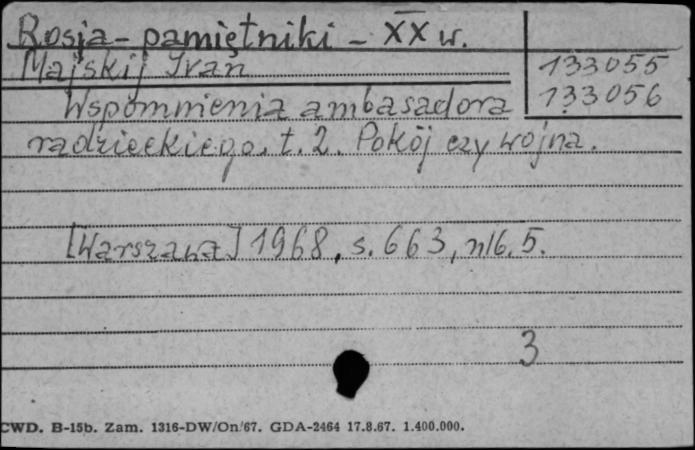 Rosja - pamiętniki - XX w.
Majskij Ivan
133055
133056
Wspomnienia ambasadora
radzieckiego. t. 2. Pokój czy wojna.
[Warszawa] 1968, s. 663, nlb. 5.
3
CWD. B-15b. Zam. 1316-DW/On/67. GDA-2464 17.8.67. 1.400.000.